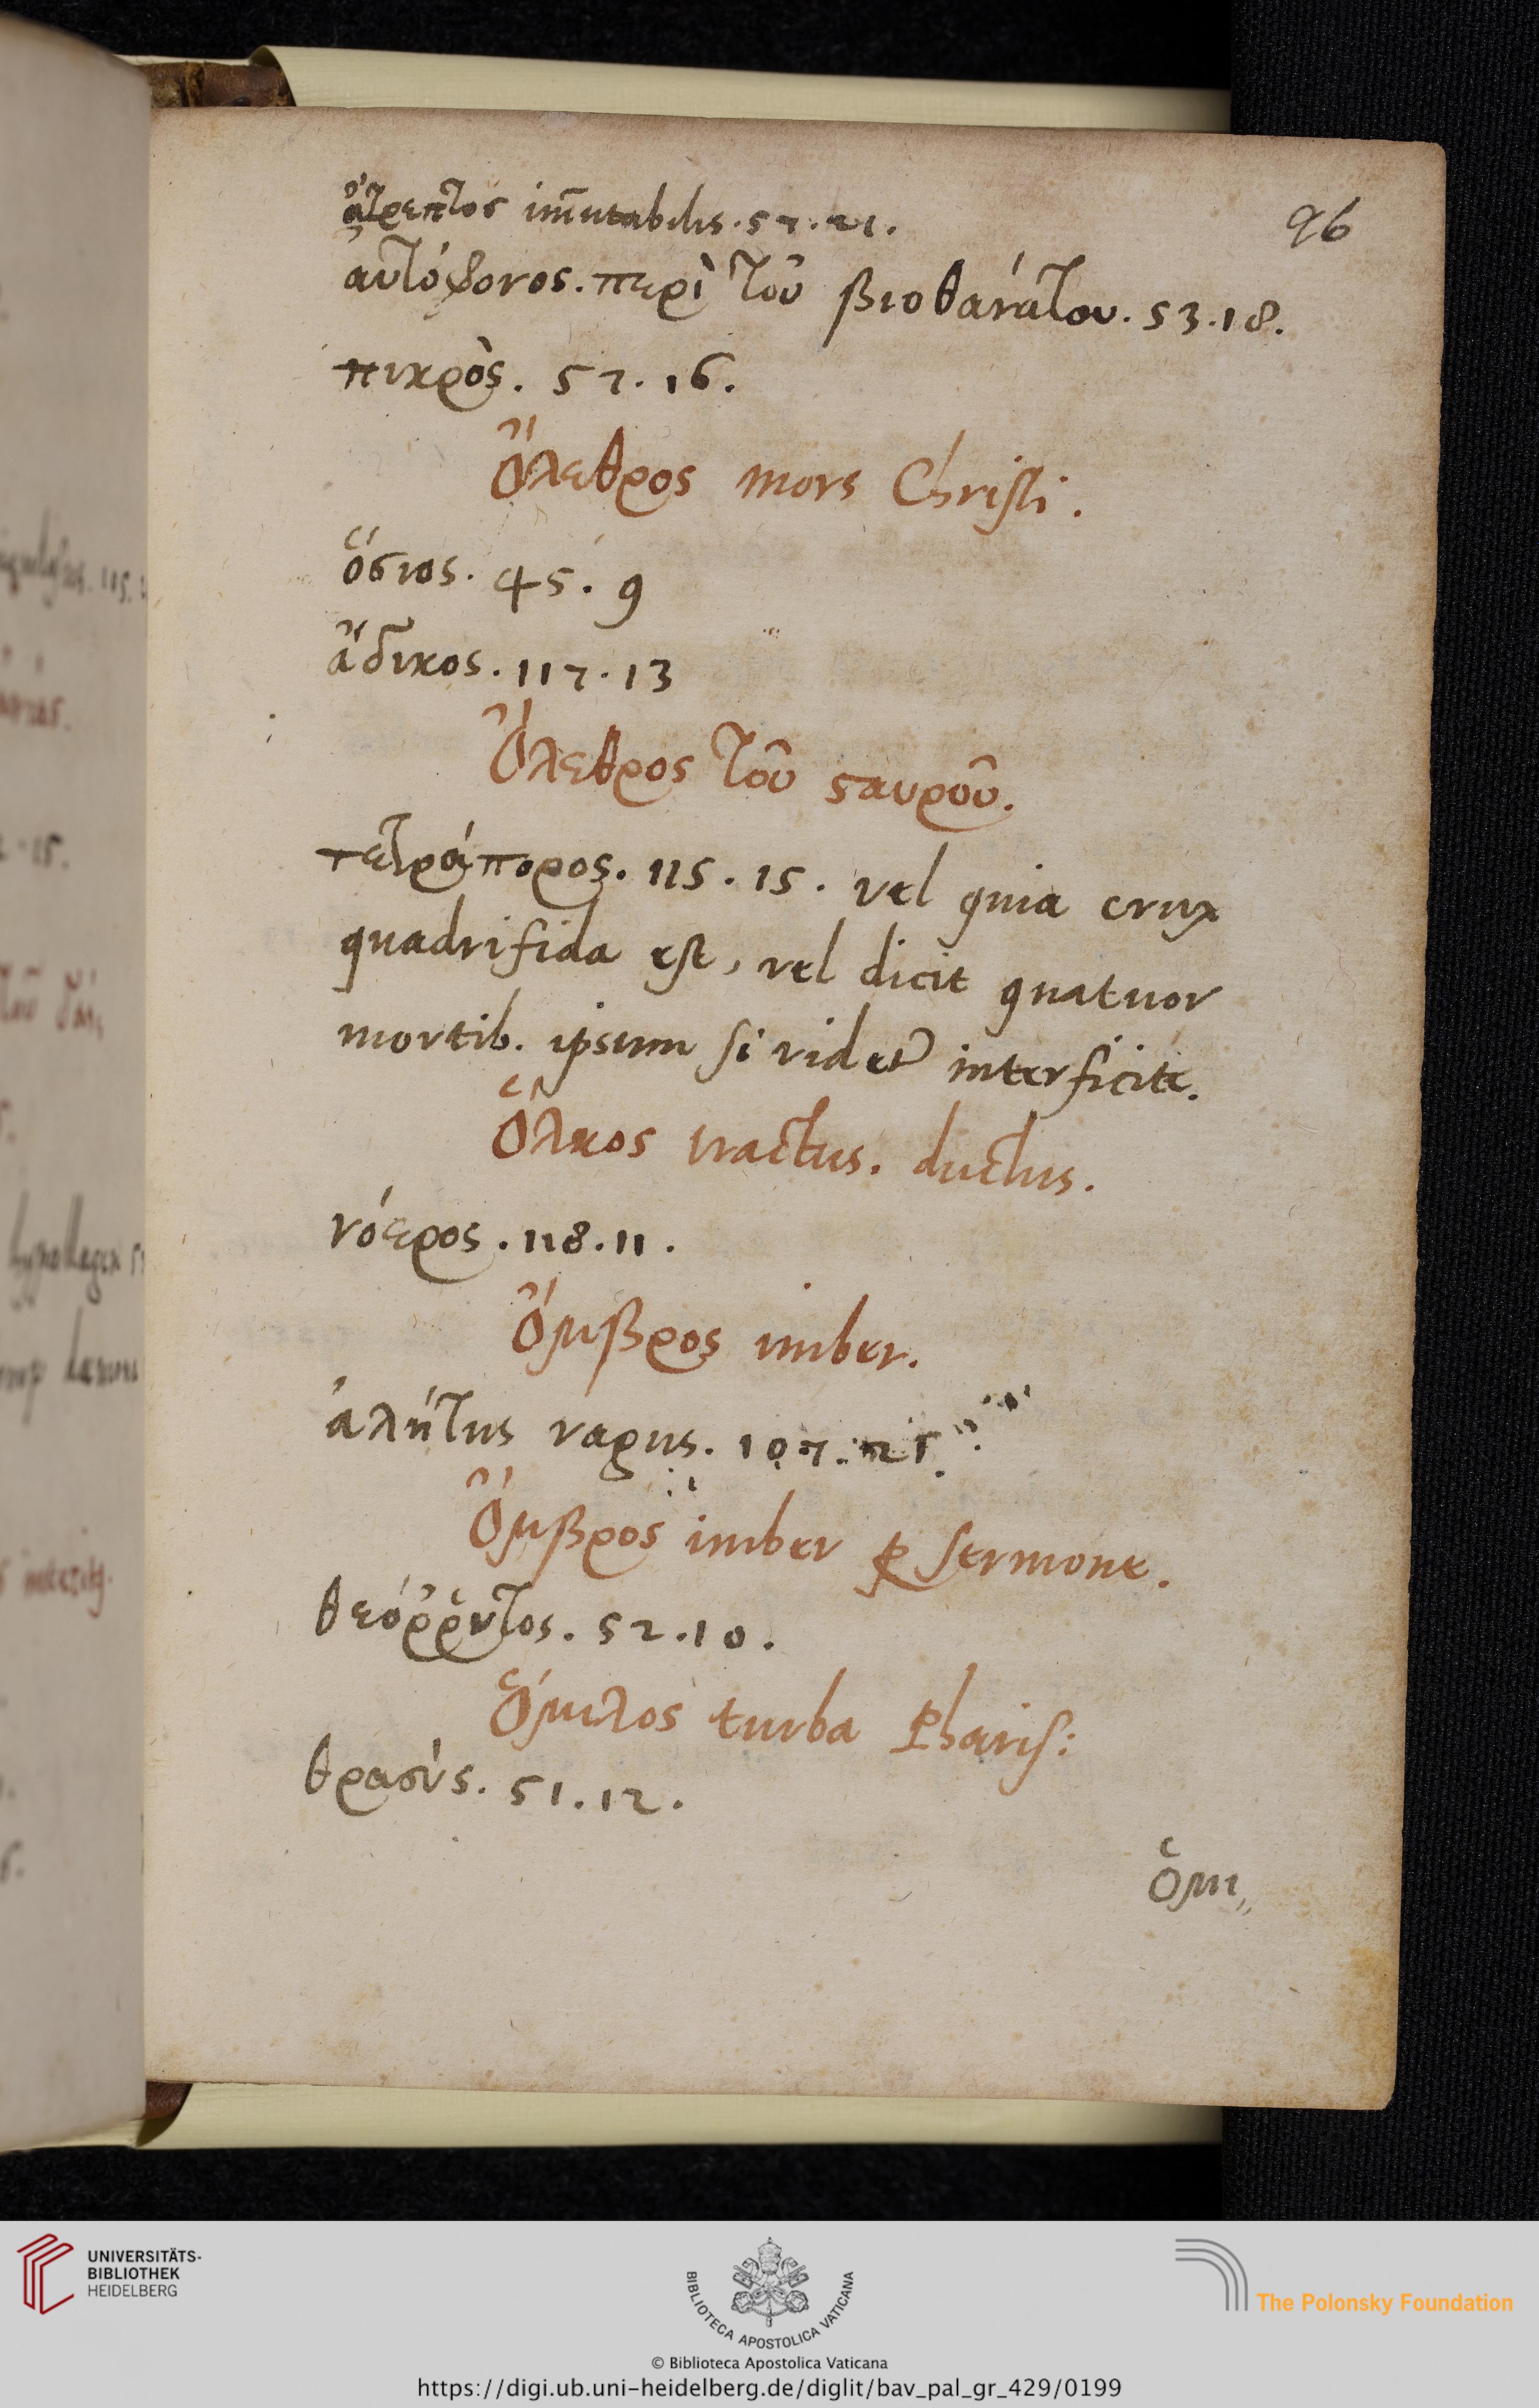 96
ἄτρεπτος im̄utabilis. 57. 21.
αὐτόφονος. περὶ τοῦ βιοθανάτου. 53. 18.
πικρὸς. 57. 16.
Ὄλεθρος mors Christi.
ὅσιος. 45. 9
ἄδικος. 117. 13
Ὄλεθρος τοῦ ϛαυροῦ.
τετράπορος. 115. 15. vel quia crux
quadrifida est, vel dicit quatuor
mortib. ipsum si videt interficite.
Ὅλκος tractus. ductus.
νόερος. 118. 11.
Ὄμβρος imber.
ἀλήτης vagus. 107. 21.
Ὄμβρος imber ꝓ sermone.
θεόῤῥυτος. 52. 10.
Ὅμιλος turba Pharis:
θρασύς. 51. 12.
ὁμι,,
UNIVERSITÄTS-
BIBLIOTHEK
HEIDELBERG
BIBLIOTECA APOSTOLICA VATICANA
The Polonsky Foundation
© Biblioteca Apostolica Vaticana
https://digi.ub.uni-heidelberg.de/diglit/bav_pal_gr_429/0199